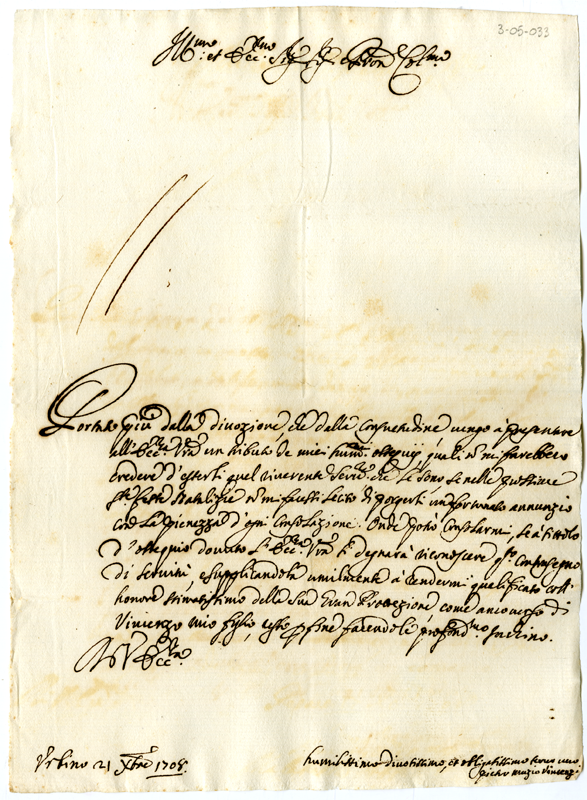 3-05-033
Ill.mo et Ecc.mo Sig.r Sig.r e Pron Col.mo
Portato più dalla divozione, che dalla consuetudine vengo à presentare
all'Ecc.za Vra un tributo de miei humi. ossequij quali non mi farebbero
credere d'esserli quel riverente Serv.re che le sono se nelle prossime
S.te Feste Natalizie non mi facessi lecito di porgerli un fortunato annunzio
con la pienezza d'ogni consolazione. Onde potrò consolarmi, se à titolo
d'ossequio dovuto l'Ecc.za Vra si degnarà riconoscere q.sto contrasegno
di servitù, e supplicandola umilmente à rendermi qualificato coll'
honore stimatissimo della Sua Gran Protezzione come ancora di
Vincenzo mio figlio, resto per fine facendole profond.mo inchino.
Di V. Ecc.za
Urbino 21 Xbre 1708.
humilissimo divotissimo, et obligatissimo servo vero
Pietro Muzio Vincenzi